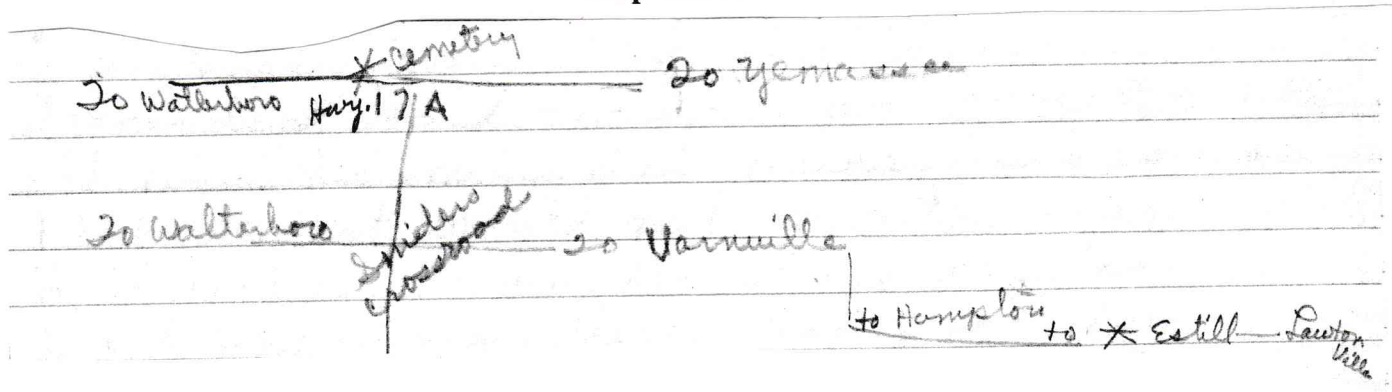 * Cemetery
To Walterboro Hwy. 17 A To Yemassee
To Walterboro Sniders Crossroad To Varnville
to Hampton to * Estill Lawton Ville